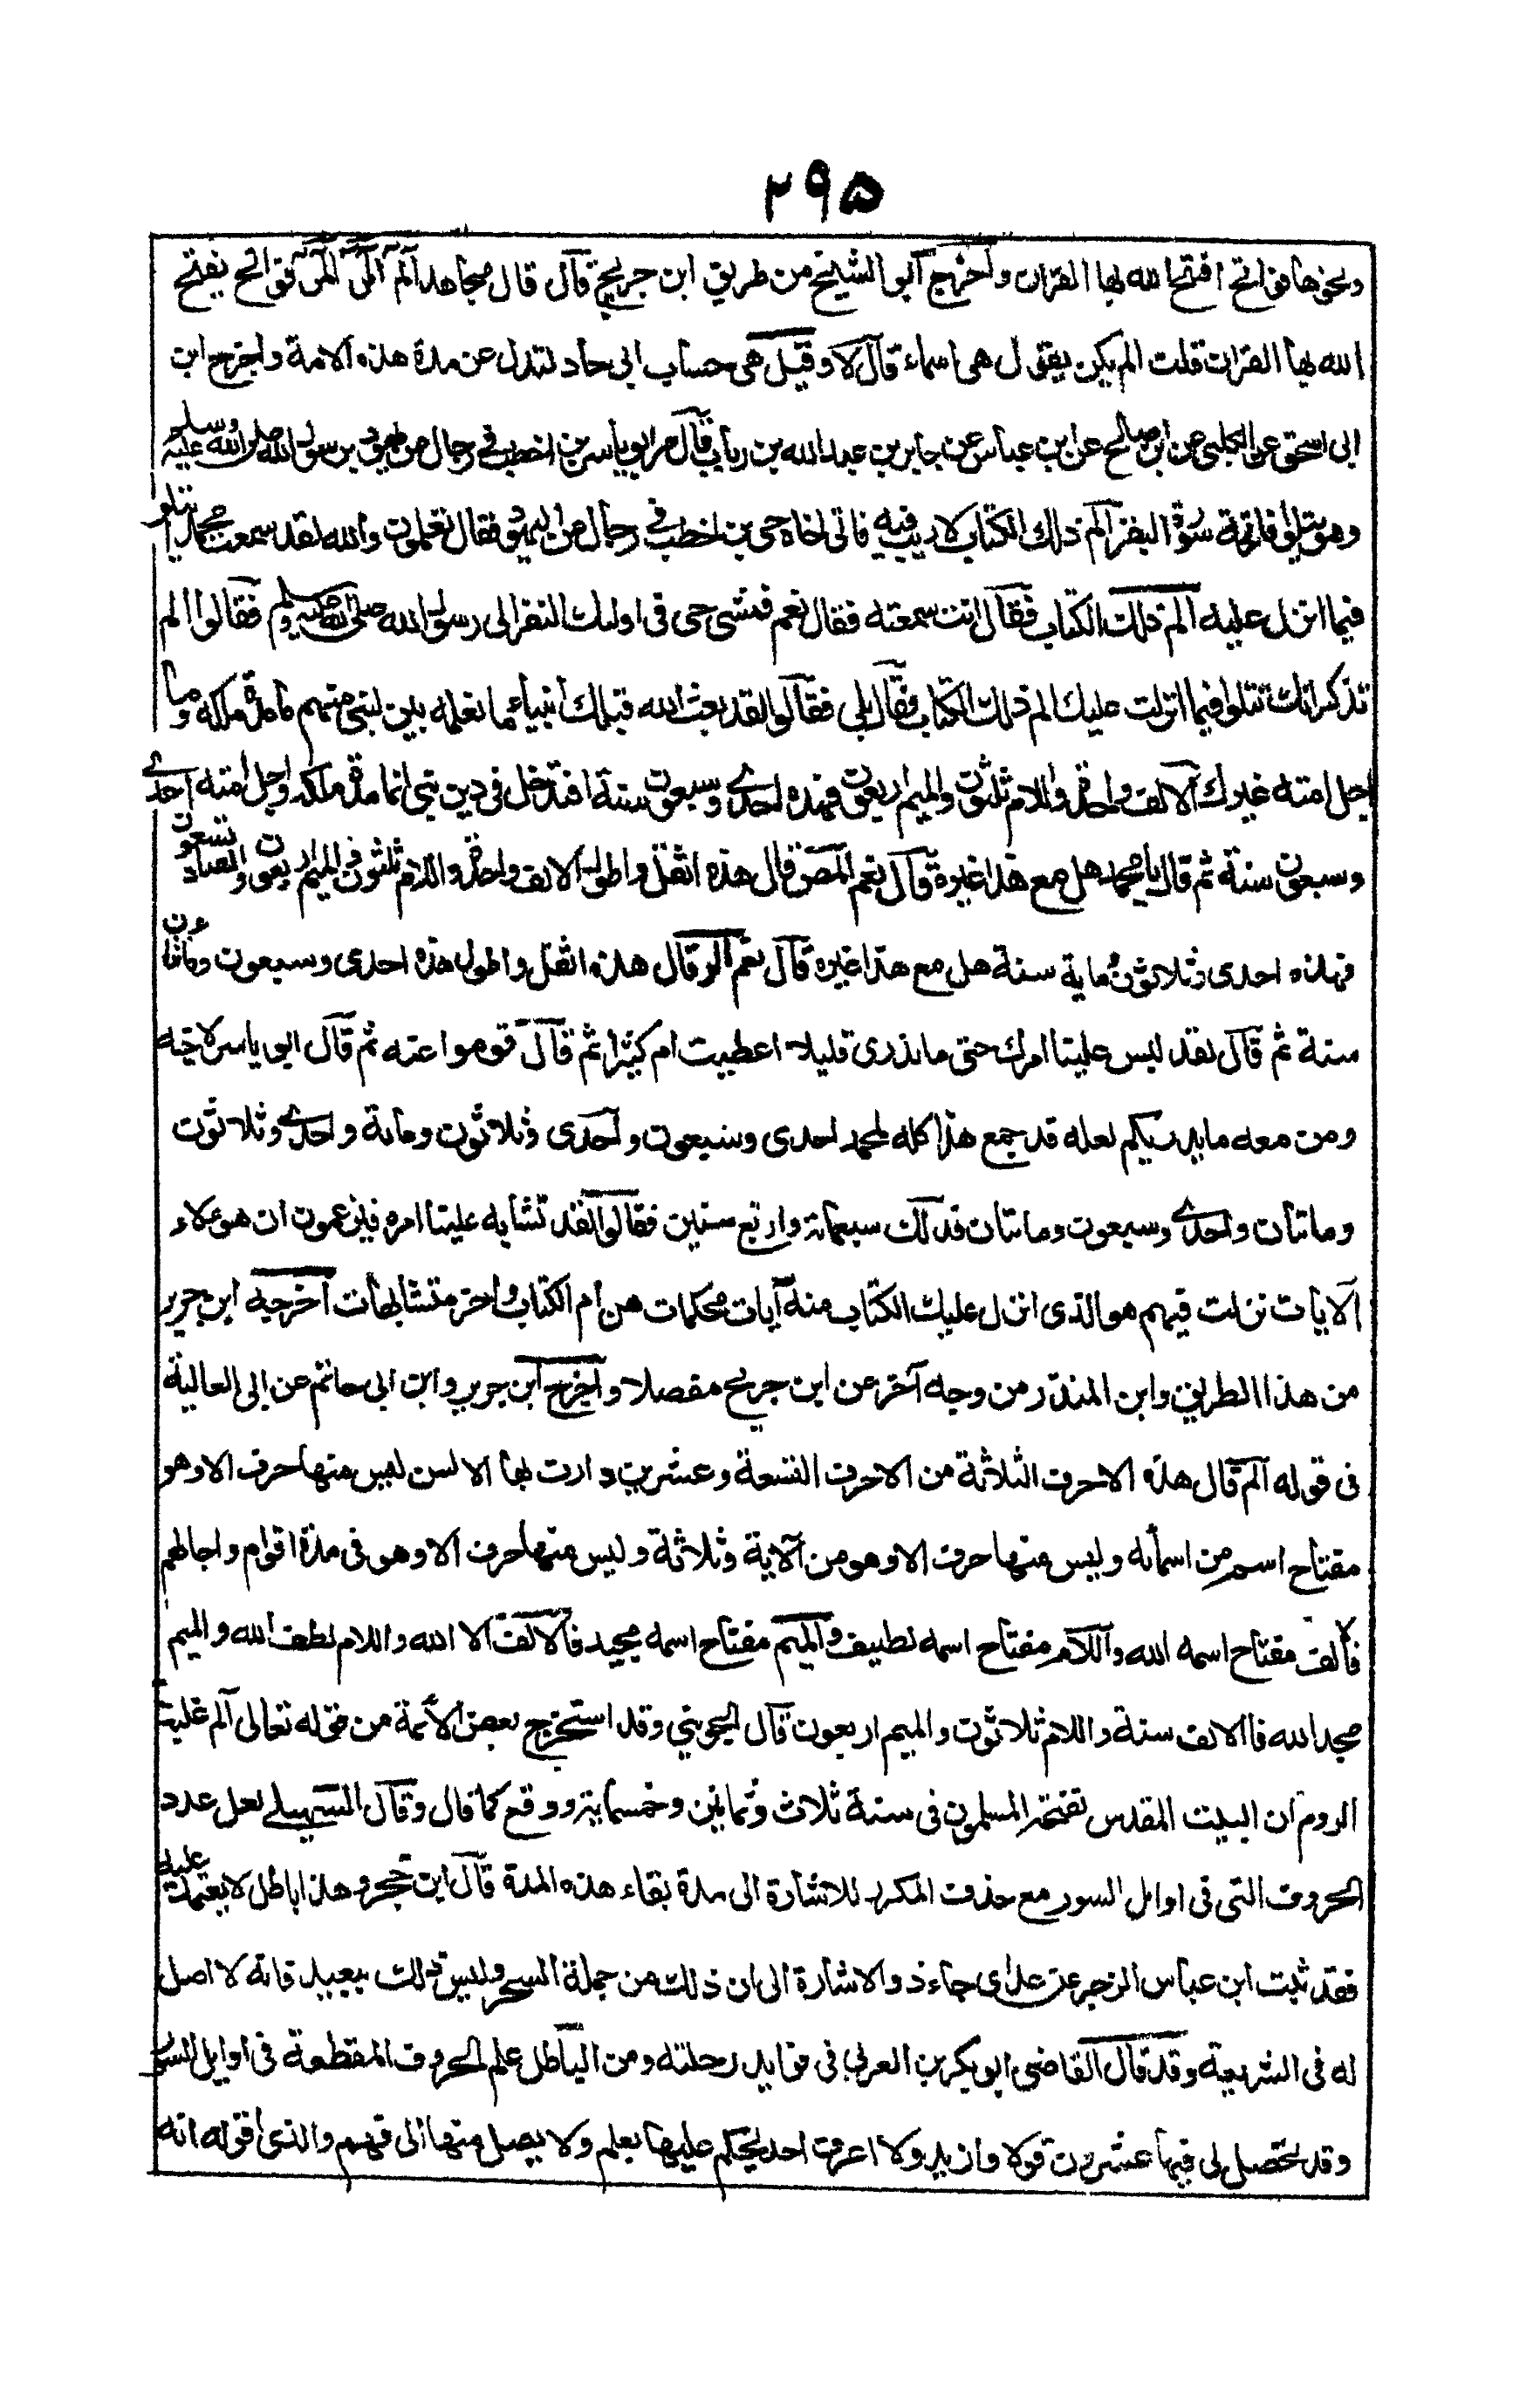 ٢٩٥
ونحوها فواتح افتتح الله بها القران واخرج ابو الشيخ من طريق ابن جريج قال قال مجاهد الم الر المر فواتح يفتتح
الله بها القران قلت الم يكن يقول هى اسماء قال لا وقيل هى حساب ابى جاد لتدل عن مدة هذه الامة واخرج ابن
ابى اسحق عن الكلبى عن ابى صالح عن ابن عباس عن جابر بن عبد الله بن رباب قال مر ابو ياسر بن اخطب فى رجال من يهود برسول الله صلى الله عليه وسلم
وهو يتلو فاتحة سورة البقرة الم ذلك الكتاب لا ريب فيه فاتى اخاه حى بن اخطب فى رجال من اليهود فقال تعلمون والله لقد سمعت محمدا يتلو
فيما انزل عليه الم ذلك الكتاب فقال انت سمعته فقال نعم فمشى حى فى اولئك النفر الى رسول الله صلى الله عليه وسلم فقالوا الم
تذكر انك تتلوا فيما انزلت عليك الم ذلك الكتاب فقال بلى فقالوا لقد بعث الله قبلك انبياء ما نعلمه بين لنبى منهم ما مدة ملكه وما
اجل امته غيرك الالف واحدة واللام ثلثون والميم اربعون فهذه احدى وسبعون سنة افتدخل فى دين نبى انما مدة ملكه واجل امته احدى
وسبعون سنة ثم قال يا محمد هل مع هذا غيره قال نعم المص قال هذه اثقل واطول الالف واحدة واللام ثلثون والميم اربعون والصاد تسعون
فهذه احدى وثلاثون وماية سنة هل مع هذا غيره قال نعم الر قال هذه اثقل واطول هذه احدى وسبعون ومائتان
سنة ثم قال لقد لبس علينا امرك حتى ما ندرى قليلا اعطيت ام كثيرا ثم قال قوموا عنه ثم قال ابو ياسر لاخيه
ومن معه ما يدريكم لعله قد جمع هذا كله لمحمد احدى وسبعون واحدى وثلاثون ومائة واحدى وثلاثون
ومائتان واحدى وسبعون ومائتان فذلك سبعمائة واربع سنين فقالوا لقد تشابه علينا امره فيزعمون ان هؤلاء
الايات نزلت فيهم هو الذى انزل عليك الكتاب منه آيات محكمات هن ام الكتاب واخر متشابهات اخرجه ابن جرير
من هذا الطريق وابن المنذر من وجه آخر عن ابن جريج مفصلا واخرج ابن جرير وابن ابى حاتم عن ابى العالية
فى قوله الم قال هذه الاحرف الثلاثة من الاحرف التسعة وعشرين دارت بها الالسن ليس منها حرف الا وهو
مفتاح اسم من اسمائه وليس منها حرف الا وهو من آلاية وثلاثة وليس منها حرف الا وهو فى مدة اقوام واجالهم
فالالف مفتاح اسمه الله واللام مفتاح اسمه لطيف والميم مفتاح اسمه مجيد فالالف الا الله واللام لطف الله والميم
مجد الله فاالالف سنة واللام ثلاثون والميم اربعون قال الجوينى وقد استخرج بعض الأئمة من قوله تعالى الم غلبت
الروم ان البيت المقدس تفتحه المسلمون فى سنة ثلاث وثمانين وخمسماية ووقع كما قال وقال السهيلى لعل عدد
الحروف التى فى اوايل السور مع حذف المكرر للاشارة الى مدة بقاء هذه المدة قال ابن حجر وهذا باطل لا يعتمد عليه
فقد ثبت ابن عباس الزجر عن عد ابى جاد والاشارة الى ان ذلك من جملة السحر وليس ذلك ببعيد فانه لا اصل
له فى الشريعة وقد قال القاضى ابو بكر بن العربى فى فوايد رحلته ومن الباطل علم الحروف المقطعة فى اوايل السور
وقد تحصل لى فيها عشرون قولا وازيد ولا اعرف احد يحكم عليها بعلم ولا يصل منها الى فهم والذى اقوله انه